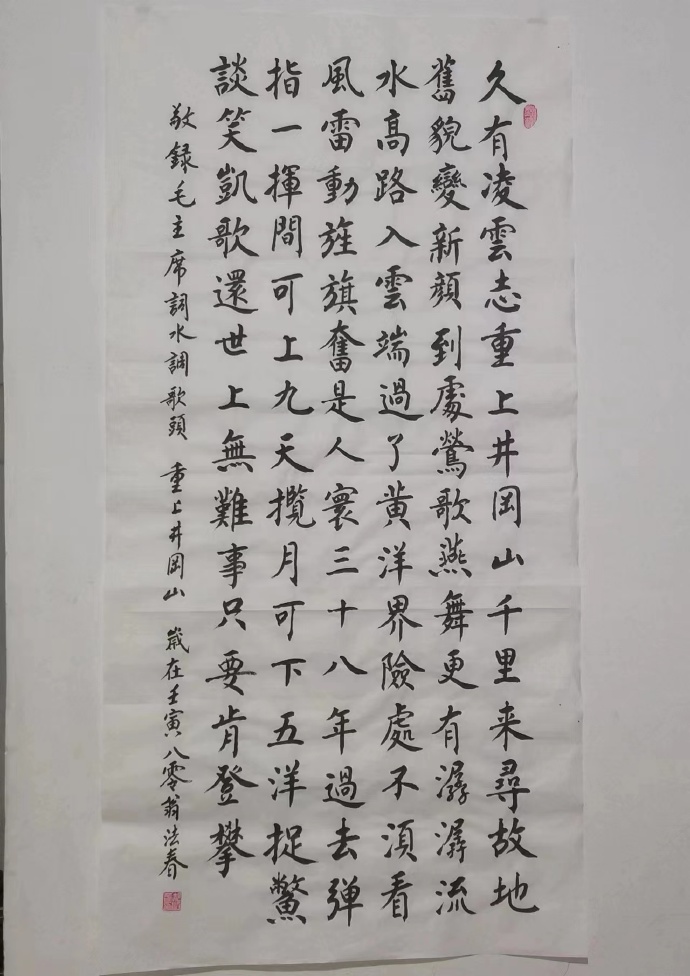 久有凌雲志重上井岡山千里来尋故地
舊貌變新顔到處鶯歌燕舞更有潺潺流
水高路入雲端過了黄洋界險處不須看
風雷動旌旗奮是人寰三十八年過去弹
指一揮間可上九天攬月可下五洋捉鱉
談笑凱歌還世上無難事只要肯登攀
敬録毛主席詞水調歌頭 重上井岡山 歲在壬寅八零翁法春